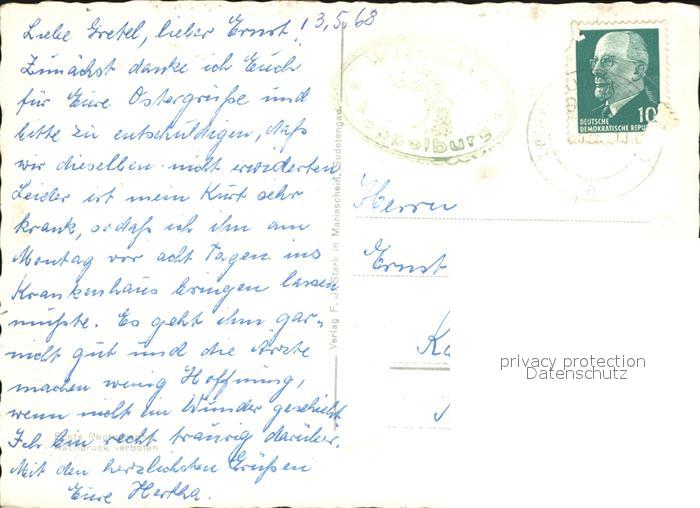 Liebe Gretel, lieber Ernst! 3.5.68
Zunächst danke ich Euch
für Eure Ostergrüße und
bitte zu entschuldigen, daß
wir dieselben nicht erwiderten
Leider ist mein Kurt sehr
krank, sodaß ich ihn am
Montag vor acht Tagen ins
Krankenhaus bringen lassen
mußte. Es geht ihm gar-
nicht gut und die Ärzte
machen wenig Hoffnung,
wenn nicht ein Wunder geschieht.
Ich bin recht traurig darüber.
Mit den herzlichsten Grüßen
Eure Hertha.
Nachdruck verboten
Verlag F. J. Stark in Mariaschein, Sudetengau.
10
DEUTSCHE
DEMOKRATISCHE REPUB
Herrn
Ernst
Ka
privacy protection
Datenschutz